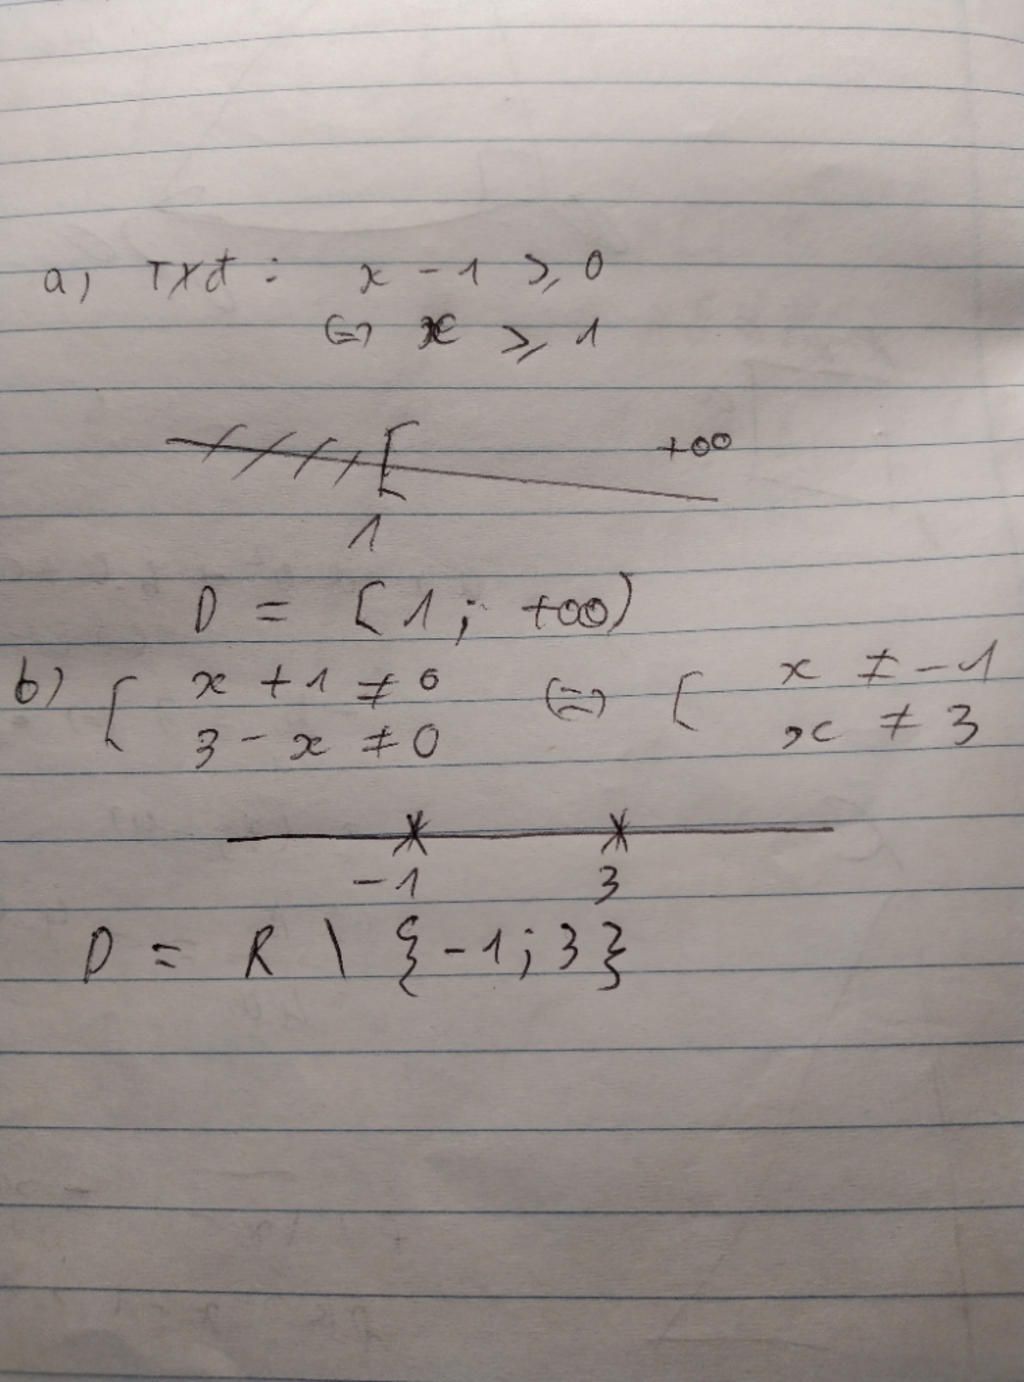 a) TXĐ: x - 1 ⩾ 0
⇔ x ⩾ 1
[ +∞
1
D = [1; +∞)
b) { x + 1 ≠ 0 ⇔ { x ≠ -1
3 - x ≠ 0 x ≠ 3
-1 3
D = R \ {-1; 3}